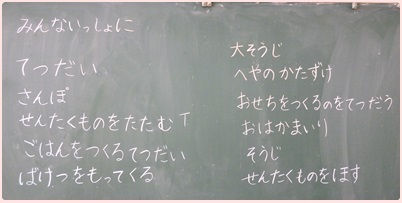 みんないっしょに
てつだい
さんぽ
せんたくものをたたむT
ごはんをつくるてつだい
ばけつをもってくる
大そうじ
へやのかたずけ
おせちをつくるのをてつだう
おはかまいり
そうじ
せんたくものをほす